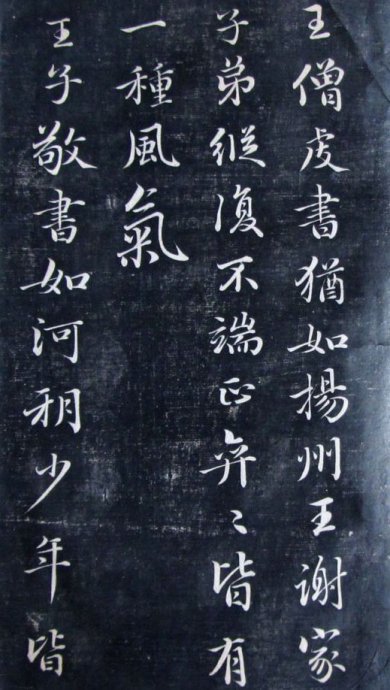 王僧虔書猶如揚州王謝家
子弟縱復不端正弈〻皆有
一種風氣
王子敬書如河朔少年皆